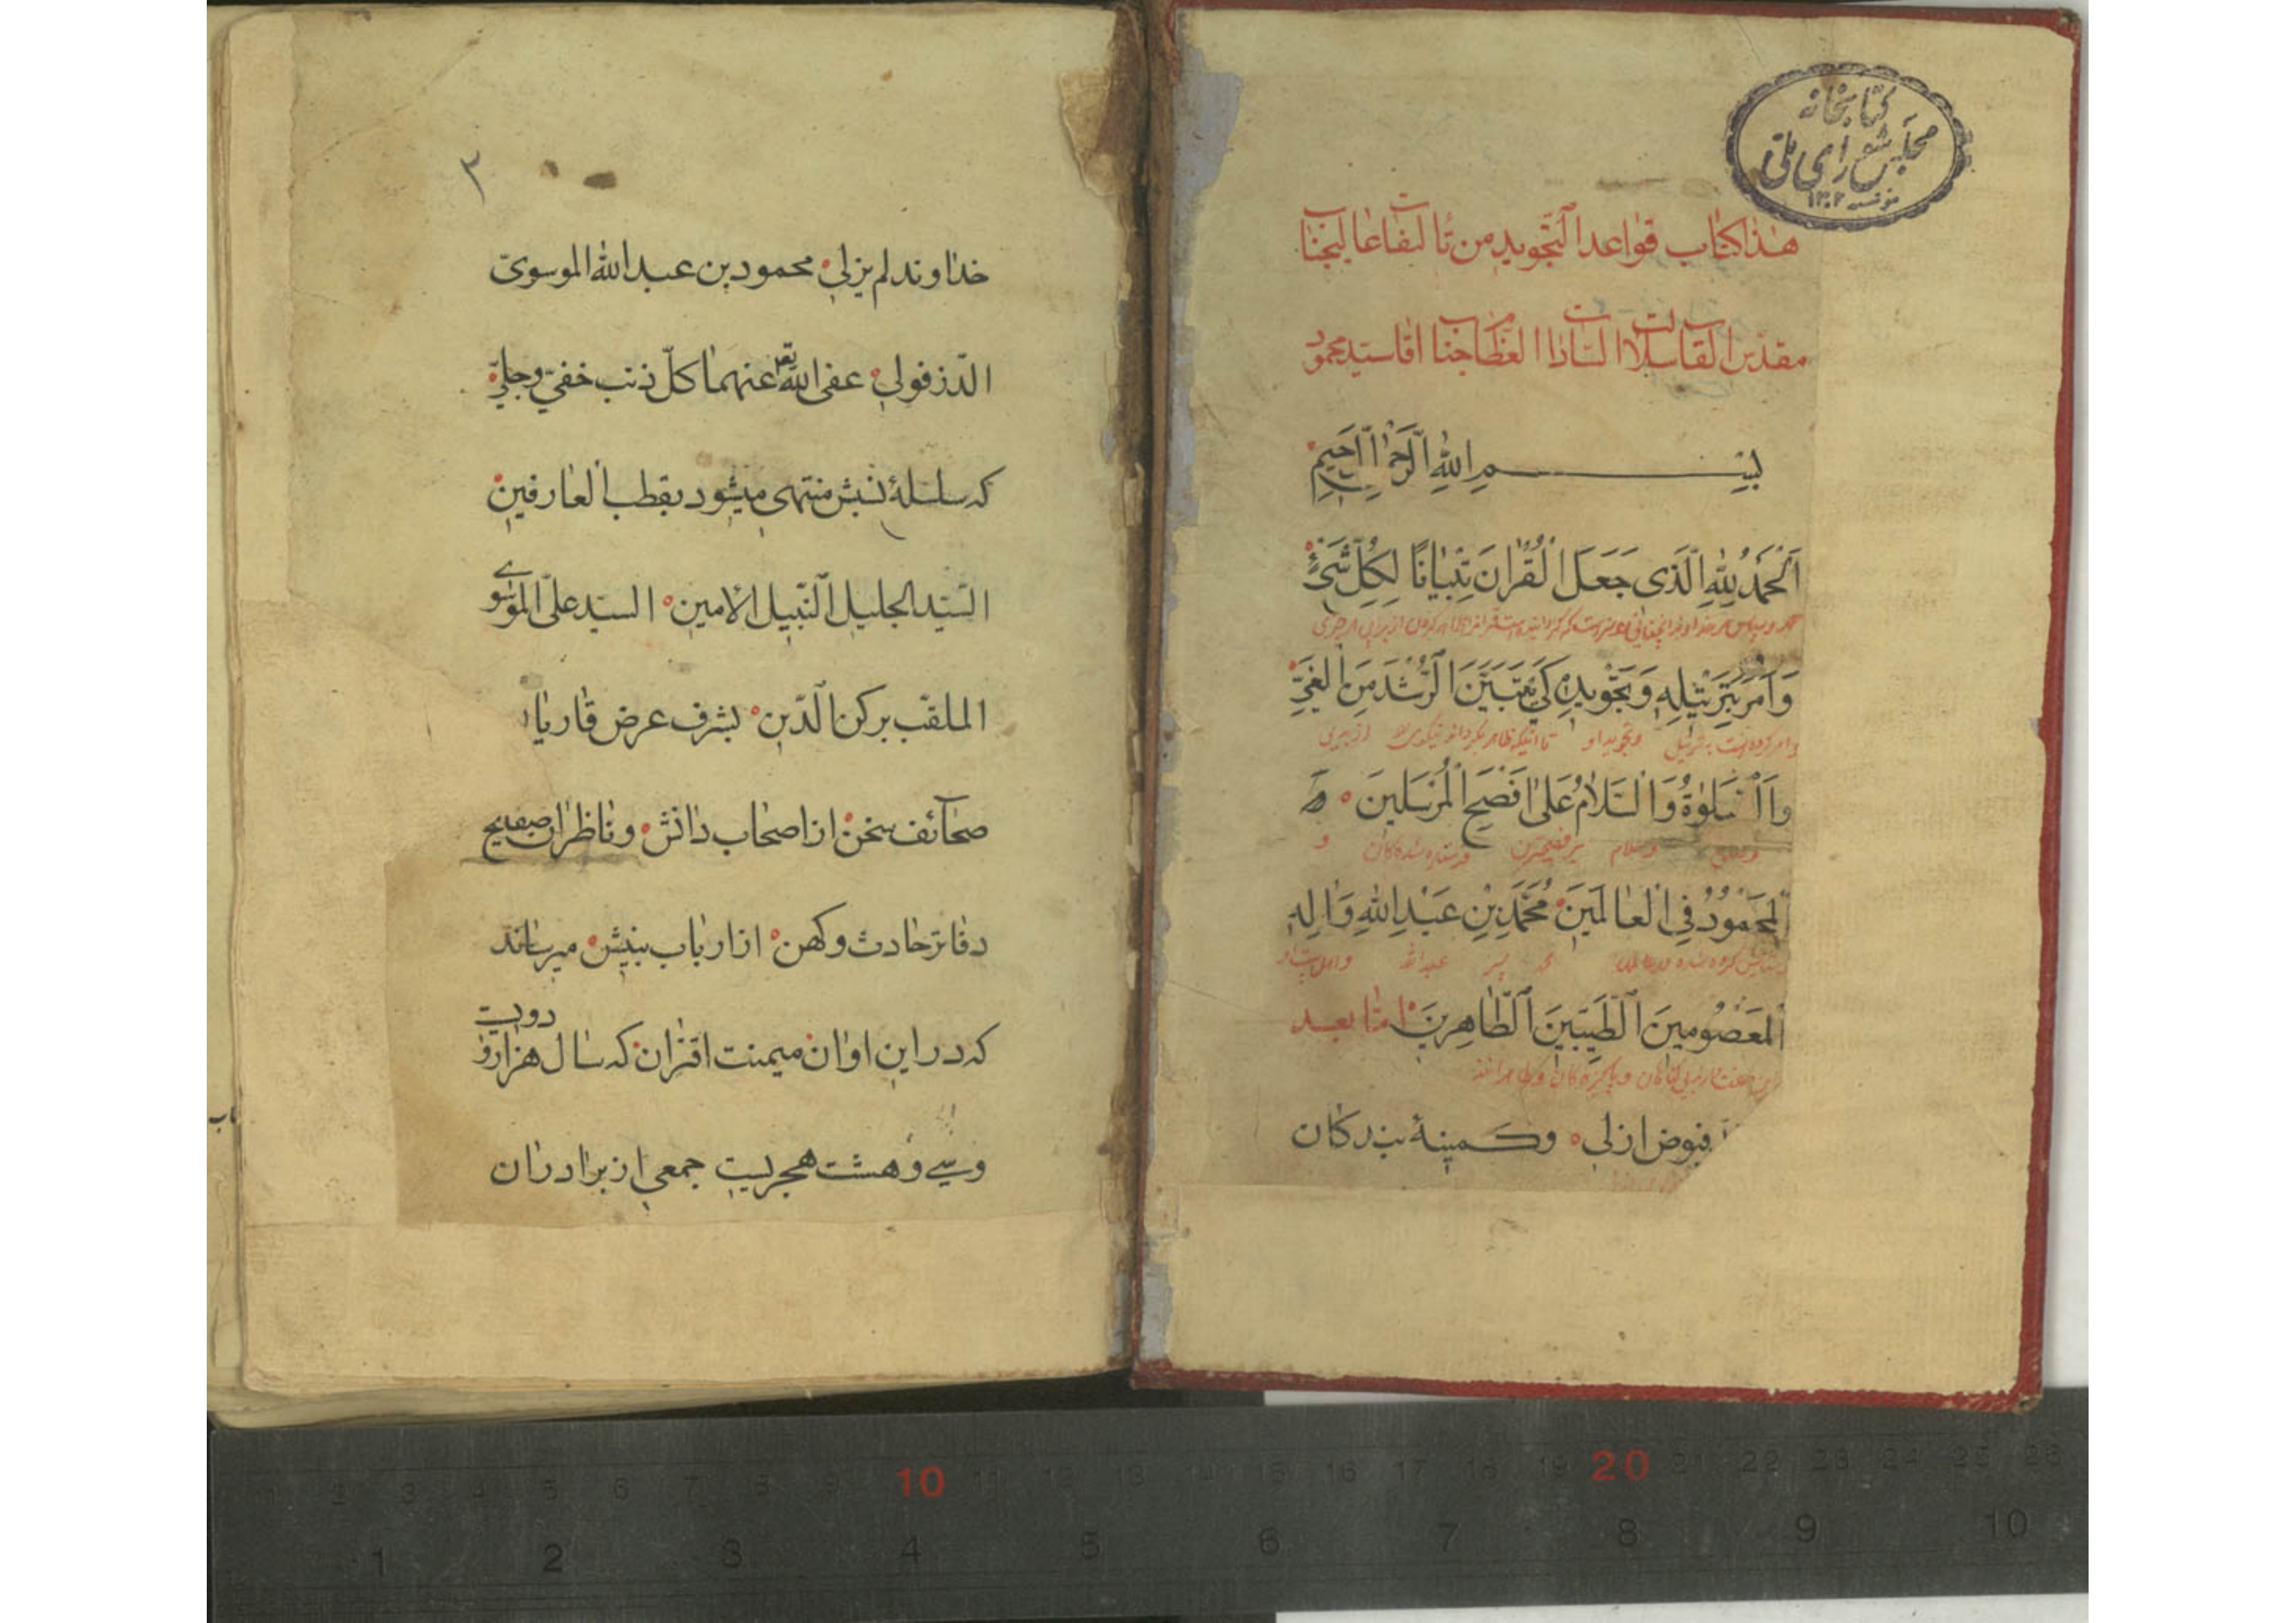 کتابخانه
مجلس شورای ملی
مؤسسه ۱۳۰۲
هذا کتاب قواعد التجوید من تألیفات عالیجناب
مقدس القاب سلالة السادات العظام جناب اقا سید محمود
بِسْمِ اللهِ الرَّحْمٰنِ الرَّحِیمِ
اَلْحَمْدُ لِلّٰهِ الَّذی جَعَلَ الْقُرْانَ تِبْیَانًا لِکُلِّ شَیْءٍ
وَاَمَرَ بِتَرْتیلِهِ وَتَجْویدِهِ کَیْ یَتَبَیَّنَ الرُّشْدَ مِنَ الْغَیِّ
و امر کرده است بترتیل و تجوید او تا اینکه ظاهر
وَالصَّلوٰةُ وَالسَّلامُ عَلیٰ اَفْصَحِ الْمُرْسَلینَ
وسلام بر فصیح‌ترین فرستاده شده کان و
الْمَحْمُودُ فِی الْعَالَمینَ مُحَمَّدِ بْنِ عَبْدِ اللهِ وَالِهِ
عبدالله
الْمَعْصُومینَ الطَّیِّبینَ الطَّاهِرینَ امّا بعد
فیوض ازلی وکمینهٔ بندکان
۳
خداوند لم یزلی محمود بن عبد الله الموسوی
الدّزفولی عفی الله تع عنهما کلّ ذنب خفیّ وجلیّ
که سلسلهٔ نسبش منتهی میشود بقطب العارفین
السّید الجلیل النّبیل الامین السید علی الموسوی
الملقّب برکن الدّین بشرف عرض قاریان
صحآئف سخن از اصحاب دانش وناظران صفایح
دفاتر حادث وکهن از ارباب بینش میرساند
که در این اوان میمنت اقتران که سال هزار و دویست
وسی وهشت هجریست جمعی از برادران